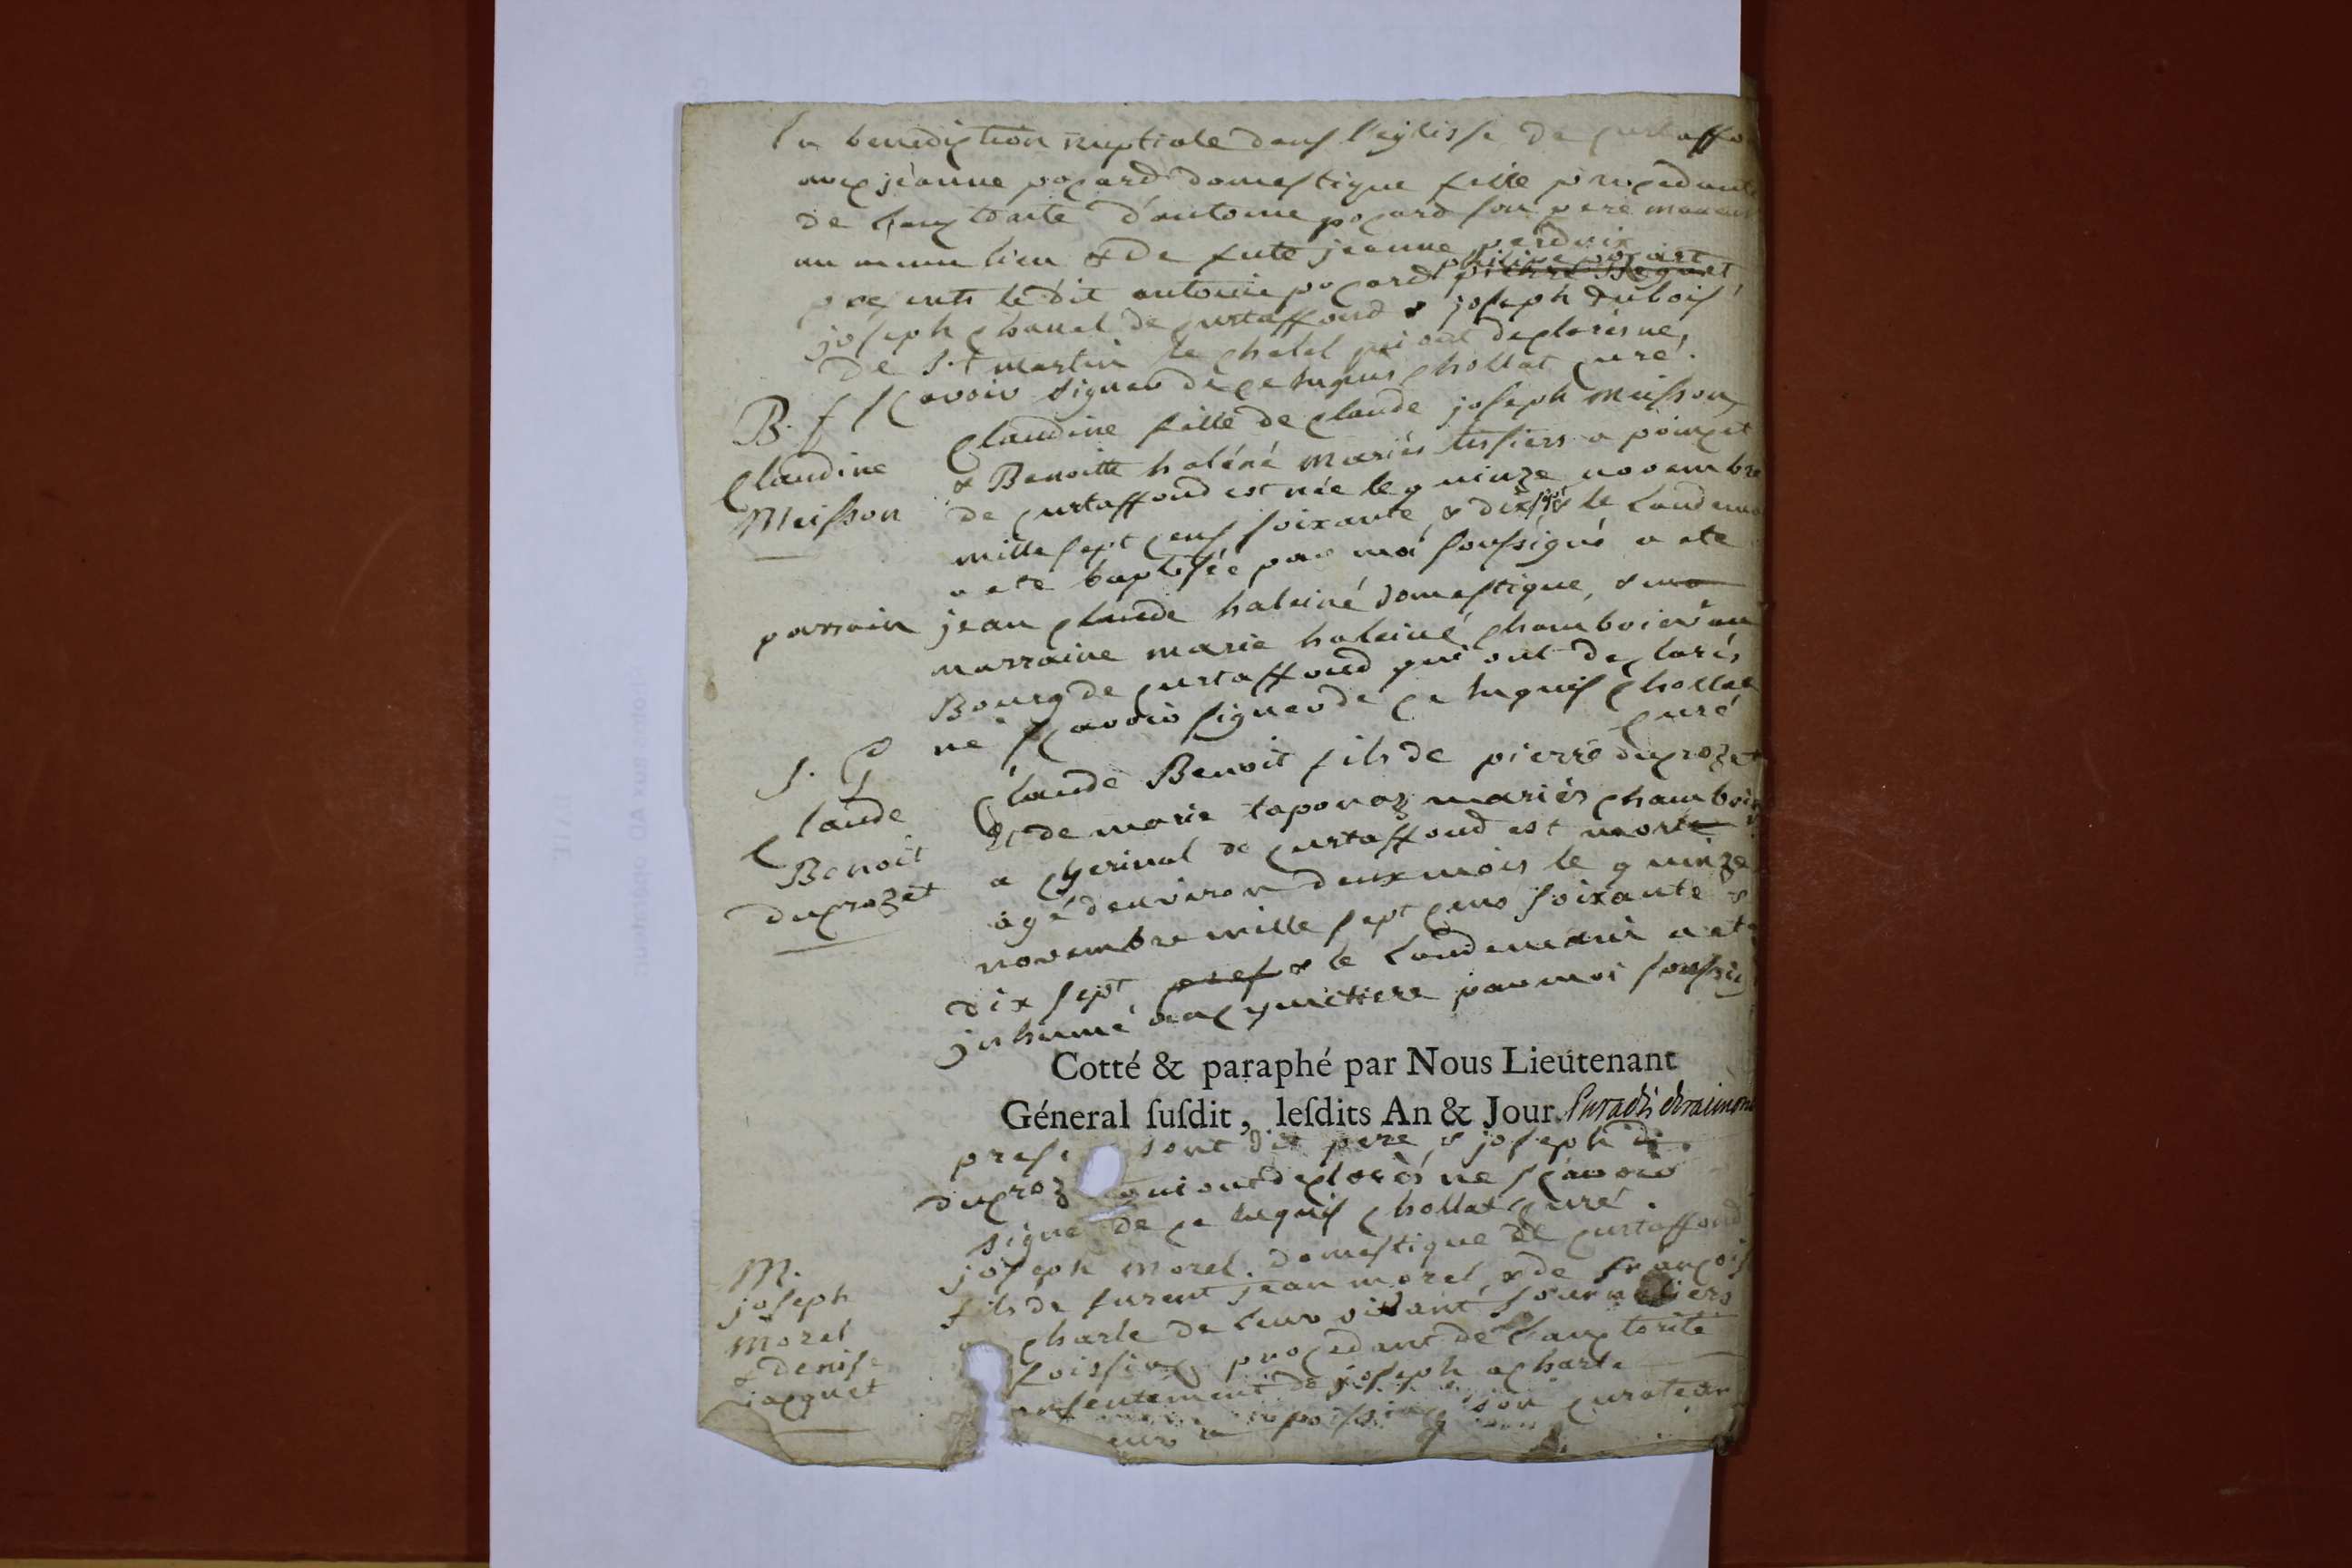 la benediction nuptiale dans l'eglisse de curtaffo
avec jeanne pocard domestique fille procedante
de l'auctorite d'antoine pocard son pere manant
au meme lieu & de fute jeanne perdrix
presents le dit antoine pocard philipe pocart
joseph chanel de curtaffond & joseph dubois
de s.t martin le chatel qui ont declarés ne,
scavoir signer de ce enquis chollat curé.
B. f
Claudine
Meisson
Claudine fille de Claude joseph Meisson
& Benoitte haléné mariés tissiers a poincet
de curtaffond est née le quinze novembre
mille sept cens soixante & dix sept le landema
a ete baptisée par moi soussigné a ete
parrain jean claude haleiné domestique, &
marraine marie haleiné chamboier au
Bourg de curtaffond qui ont declarés
ne scavoir signer de ce enquis chollat
curé
S. G
Claude
Benoit
ducrozet
Claude Benoit fils de pierre ducrozet
& de marie taponaz mariés chamboie
a cherinal de curtaffond est mort
agé denviron deux mois le quinze
novembre mille sept cens soixante &
dix sept & le landemain a ete
inhumé au cymetiere par moi soussig
Cotté & paraphé par Nous Lieutenant
Géneral ſuſdit, leſdits An & Jour.
prese sont dit pere & joseph
ducroz qui ont declarés ne scavoir
signé de ce enquis chollat curé.
M.
joseph
morel
& denise
jacquet
joseph morel domestique de curtaffond
fils de furent jean morel & de françois
charle de leur vivant journaliers
foissiag procedant de l'auctorité
nsentement de joseph acharle
son curateur